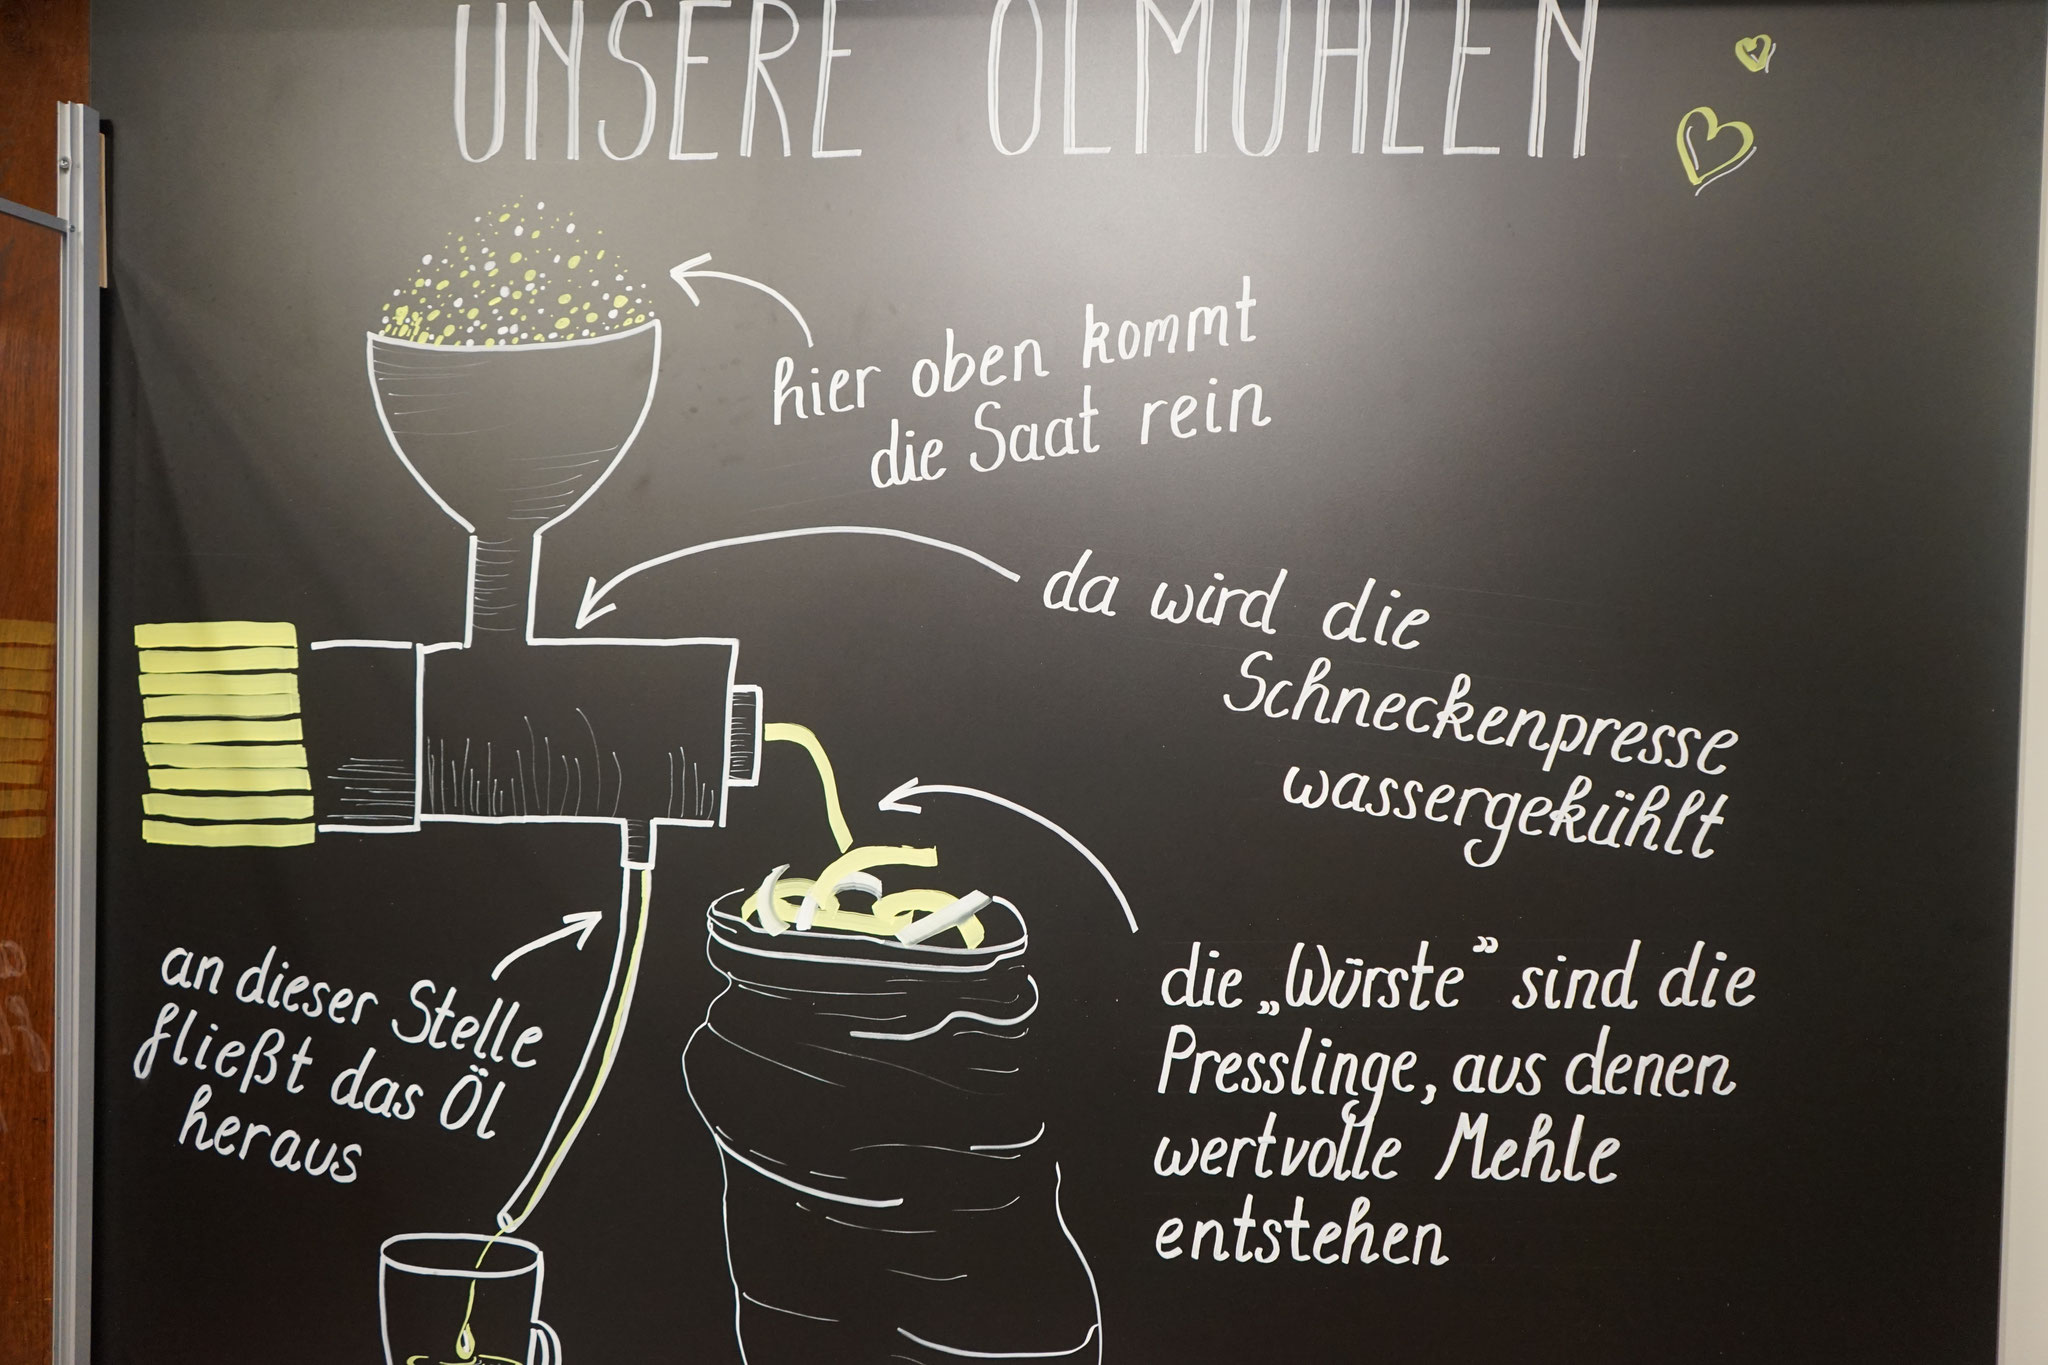 UNSERE ÖLMÜHLEN
hier oben kommt
die Saat rein
da wird die
Schneckenpresse
wassergekühlt
die „Würste” sind die
Presslinge, aus denen
wertvolle Mehle
entstehen
an dieser Stelle
fließt das Öl
heraus